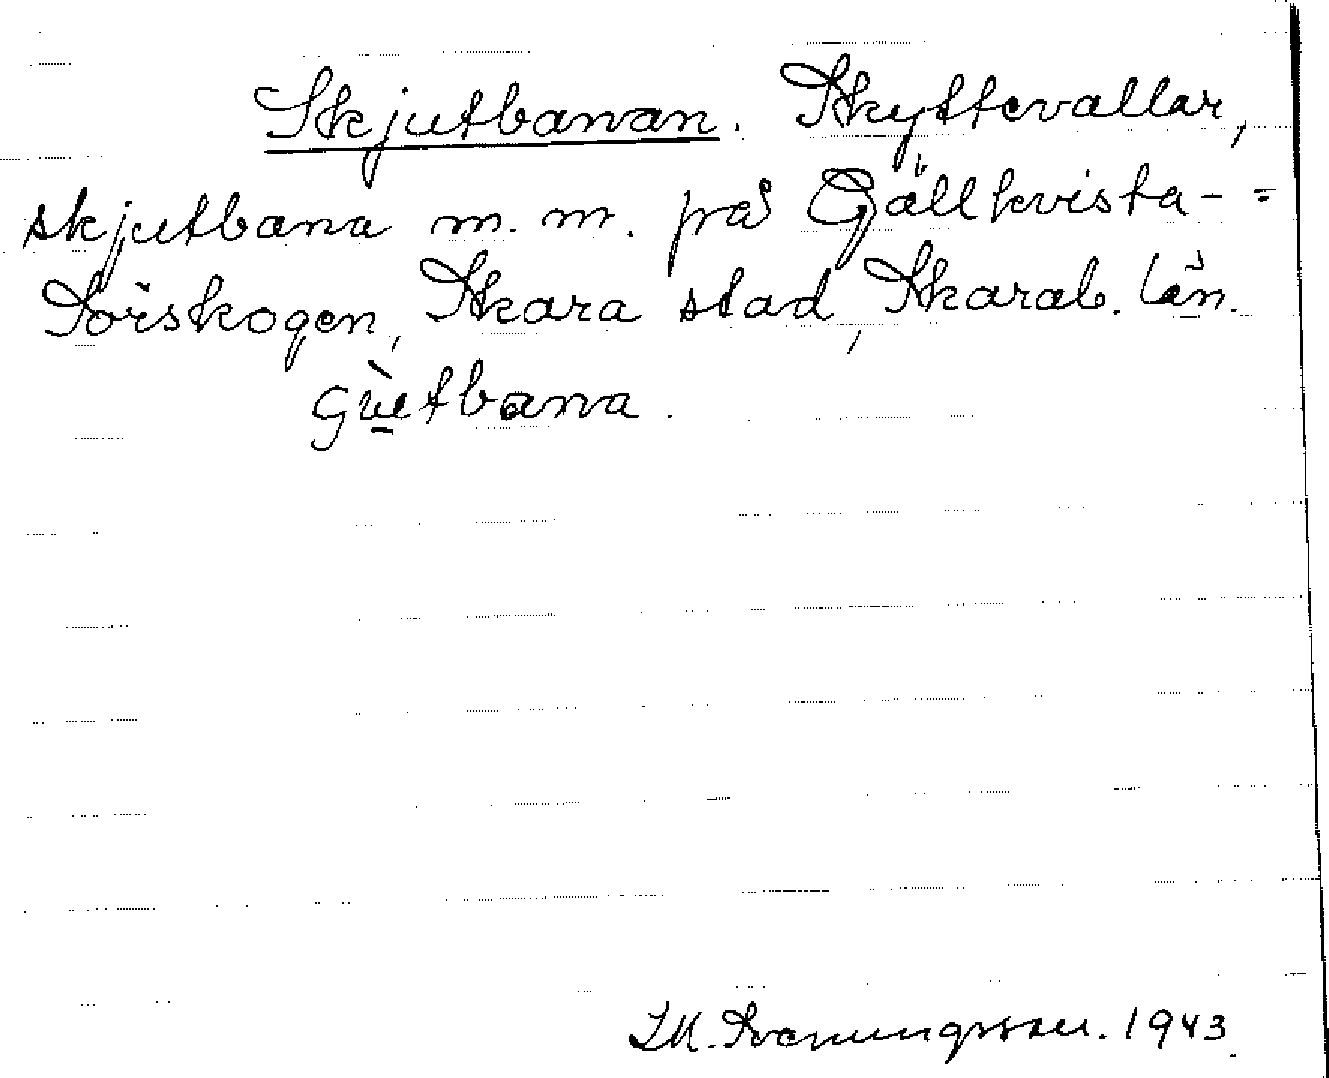 Skjutbanan. Skyttevallar,
skjutbana m. m. på Gällkvista-=
Sörskogen, Skara stad, Skarab. län.
gùtbana.
Svenungsson. 1943.